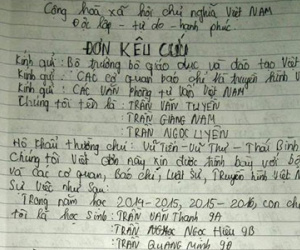 Cộng hoà xã hội chủ nghĩa Việt NAM
Độc lập - tự do - hạnh phúc
ĐƠN KÊU CỨU
Kính gửi: Bộ trưởng bộ giáo dục và đào tạo Việt
Kính gửi: CÁC cơ quan báo chí và truyền hình V
Kính gửi: CÁC VĂN phòng tư vấn Việt NAM
Chúng tôi tên là: TRẦN VĂN TUYÊN
TRẦN GIANG NAM
TRẦN NGỌC UYÊN
Hộ khẩu thường chú: Vũ Tiến - Vũ Thư - Thái Bình
Chúng tôi viết đơn này xin được trình bày với bộ
và các cơ quan, Báo chí, Luật Sư, TRuyền hình Việt N
Sự việc như sau:
Trong năm học 2014-2015, 2015-2016 con ch
tôi là học Sinh: TRẦN VĂN Thanh 9A
TRẦN Ngọc Hiệu 9B
TRẦN QUANG Minh 9B